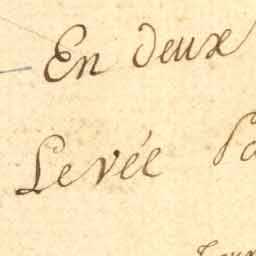 En deux
Levée Pa